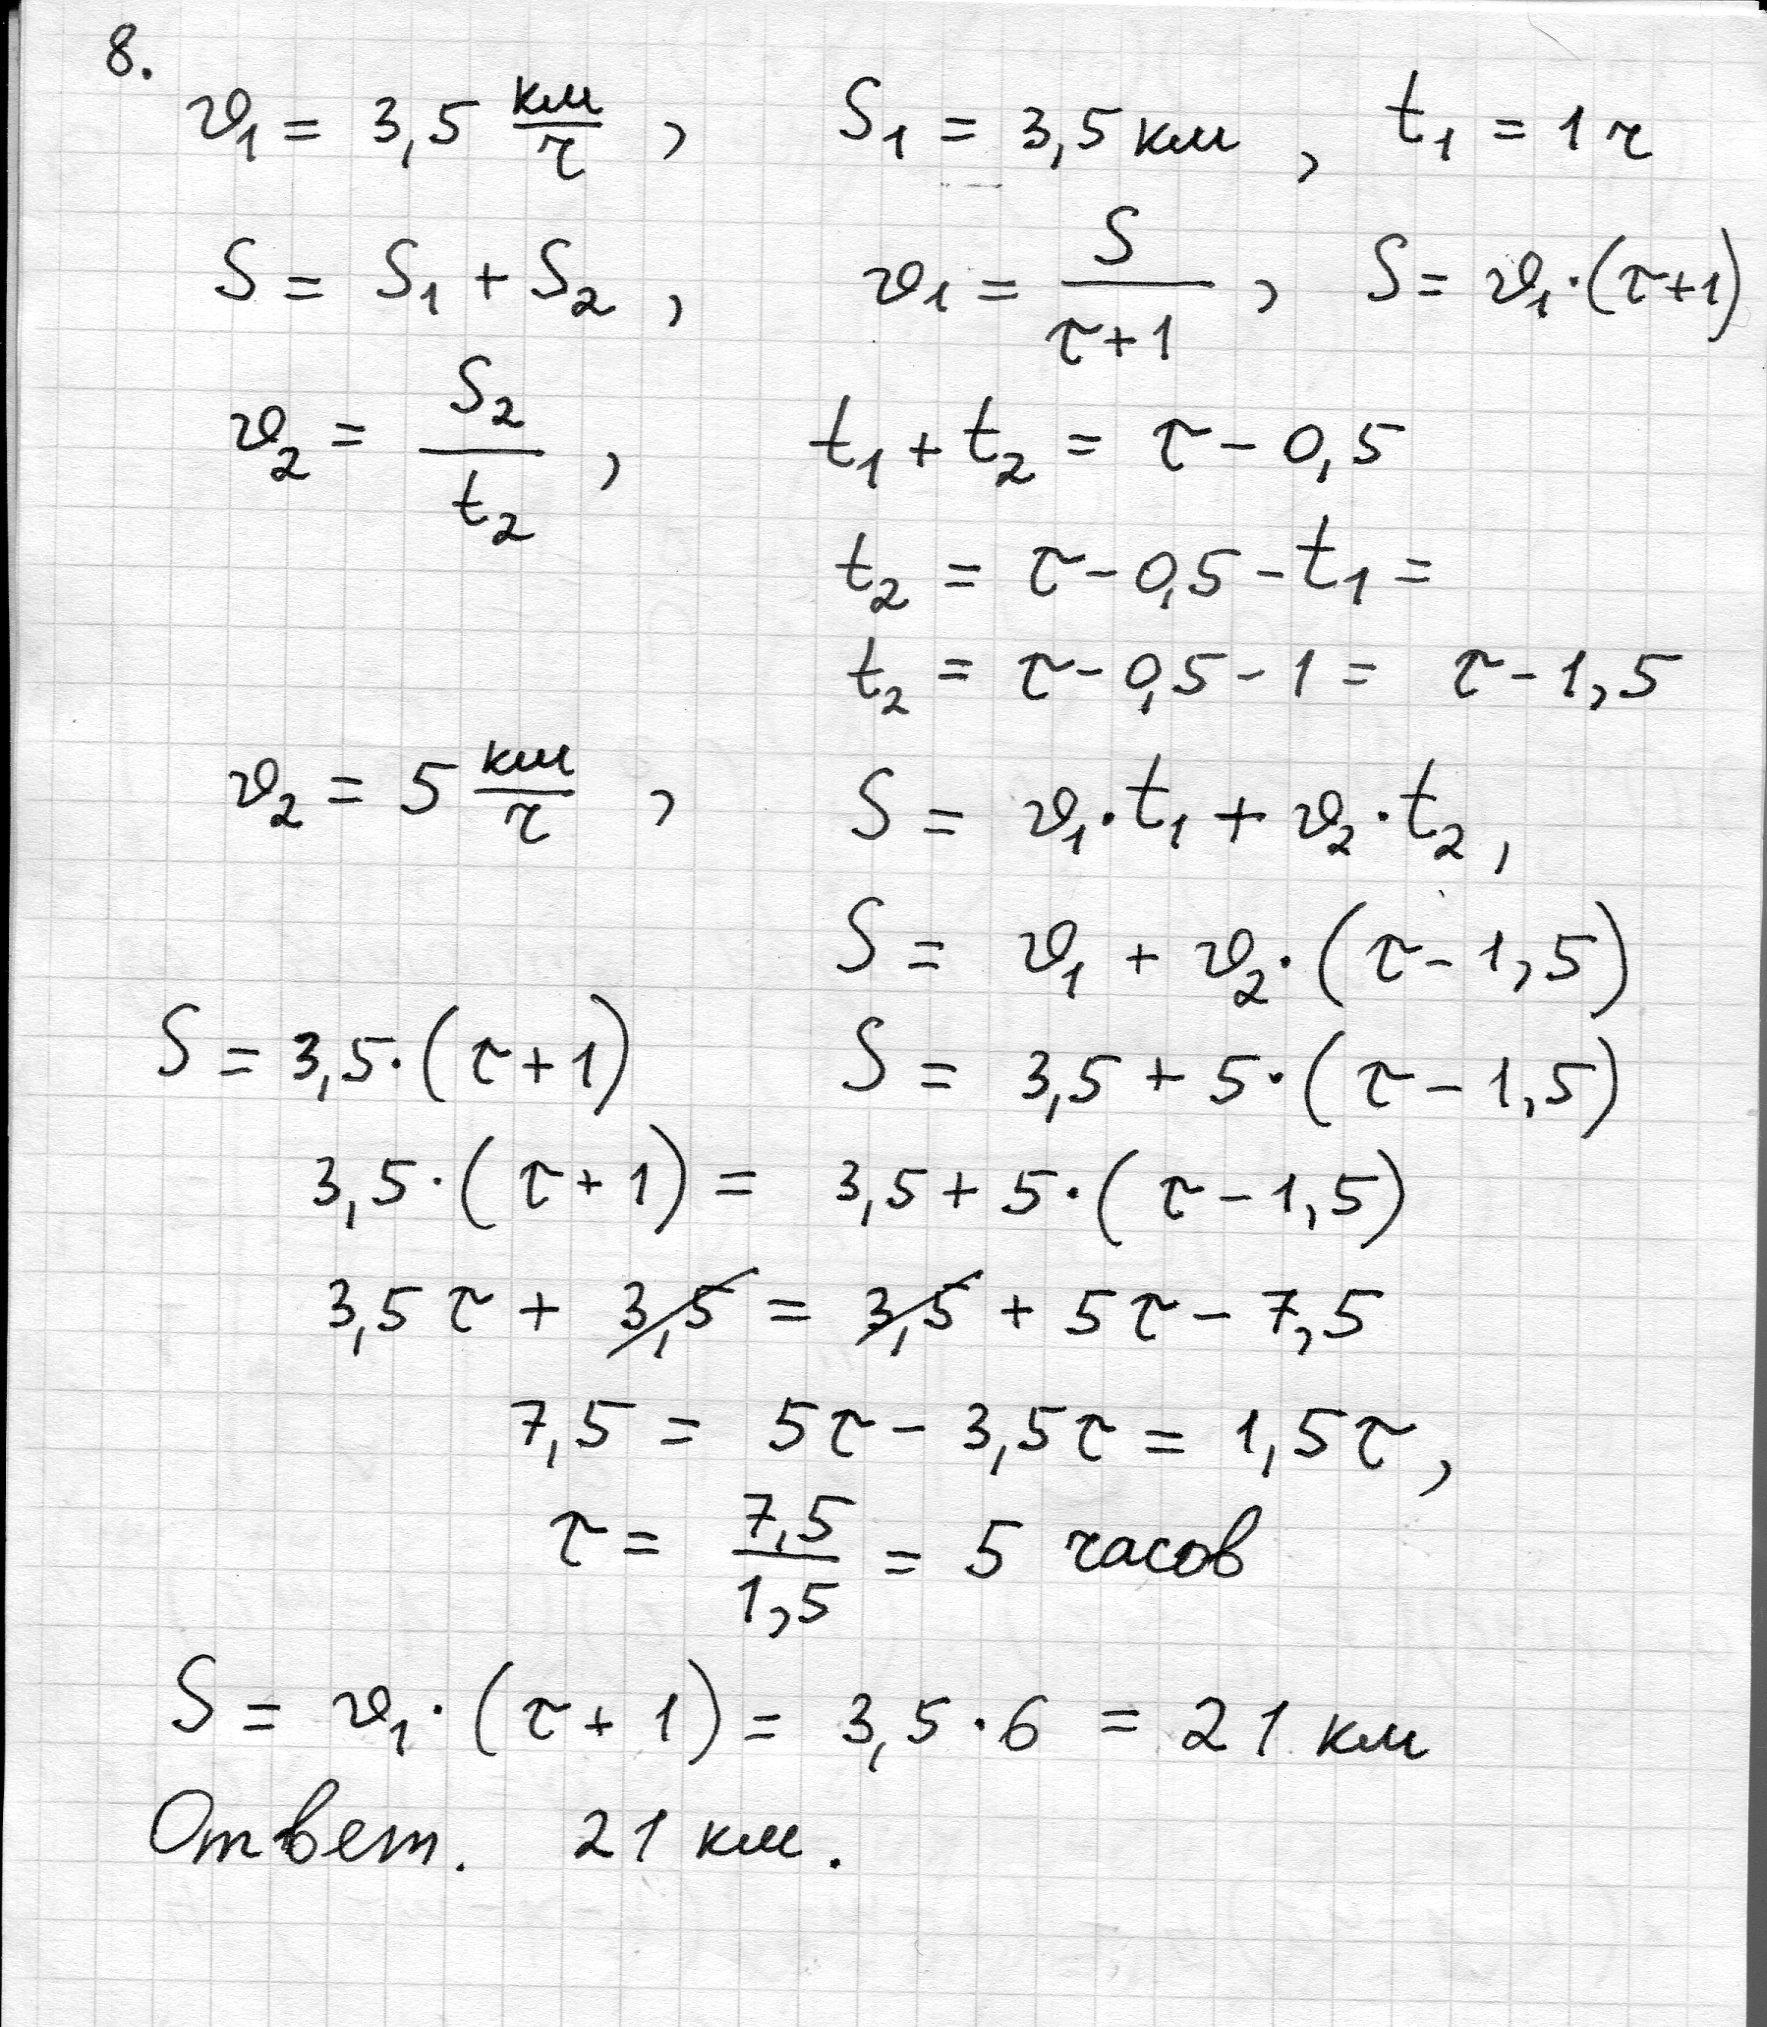 8.
v₁ = 3,5 км/ч , S₁ = 3,5 км , t₁ = 1 ч
S = S₁ + S₂ , v₁ = S/(τ+1) , S = v₁·(τ+1)
v₂ = S₂/t₂ , t₁ + t₂ = τ - 0,5
t₂ = τ - 0,5 - t₁ =
t₂ = τ - 0,5 - 1 = τ - 1,5
v₂ = 5 км/ч , S = v₁·t₁ + v₂·t₂ ,
S = v₁ + v₂·(τ - 1,5)
S = 3,5·(τ+1) S = 3,5 + 5·(τ - 1,5)
3,5·(τ+1) = 3,5 + 5·(τ - 1,5)
3,5τ + 3,5 = 3,5 + 5τ - 7,5
7,5 = 5τ - 3,5τ = 1,5τ ,
τ = 7,5/1,5 = 5 часов
S = v₁·(τ+1) = 3,5·6 = 21 км
Ответ. 21 км.